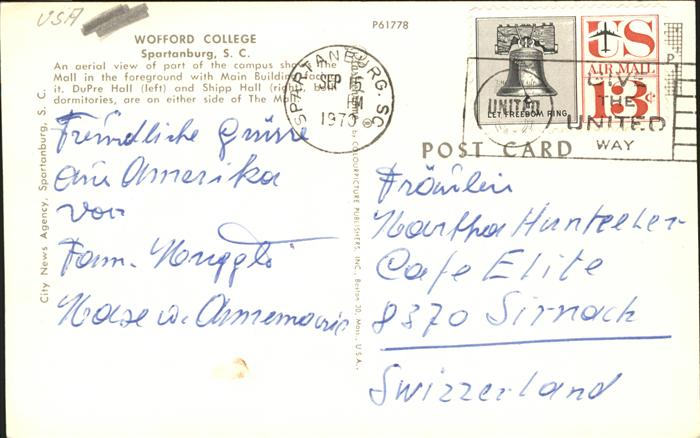 USA
WOFFORD COLLEGE
Spartanburg, S. C.
An aerial view of part of the campus
Mall in the foreground with Main Building
it. DuPre Hall (left) and Shipp Hall (right)
dormitories, are on either side of The
P61778
City News Agency, Spartanburg, S. C.
COLOURPICTURE PUBLISHERS, INC., Boston 30, Mass., U.S.A.
SPARTANBURG, SC
SEP 15
PM
1970
LET FREEDOM RING
US
AIR MAIL
13c
GIVE
THE
UNITED
WAY
UNITED
POST CARD
Freundliche Grüsse
aus Amerika
von
Fam.
u. Annemarie
Fräulein
Martha
Cafe Elite
8370 Sirnach
Switzerland